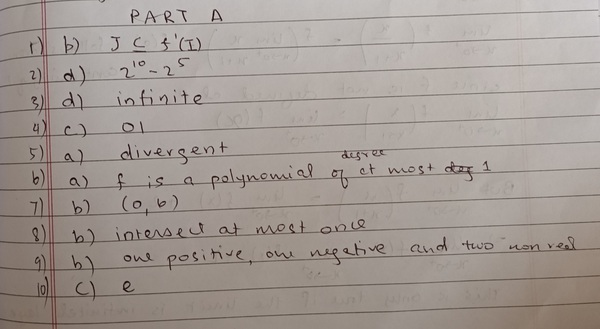 PART A
1) b) J ⊆ f'(I)
2) d) 2^10 - 2^5
3) d) infinite
4) c) 01
5) a) divergent
6) a) f is a polynomial of degree at most 1
7) b) (0, 6)
8) b) intersect at most once
9) b) one positive, one negative and two non real
10) c) e